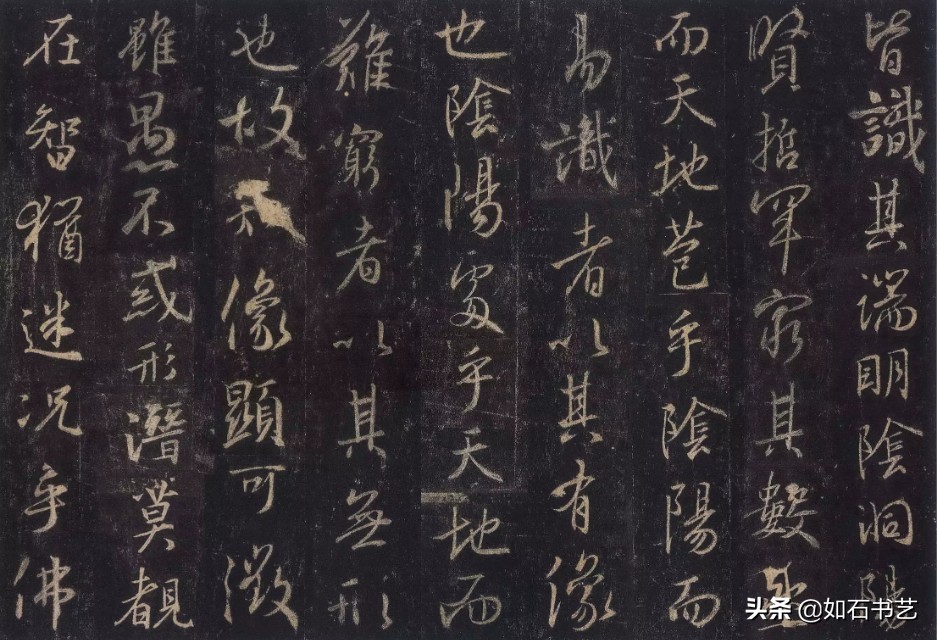 皆識其端明陰洞陽
賢哲罕窮其數
而天地苞乎陰陽而
易識者以其有像
也陰陽處乎天地而
難窮者以其無形
也故像顯可徵
雖愚不惑形潛莫覩
在智猶迷況乎佛
头条 @如石书艺